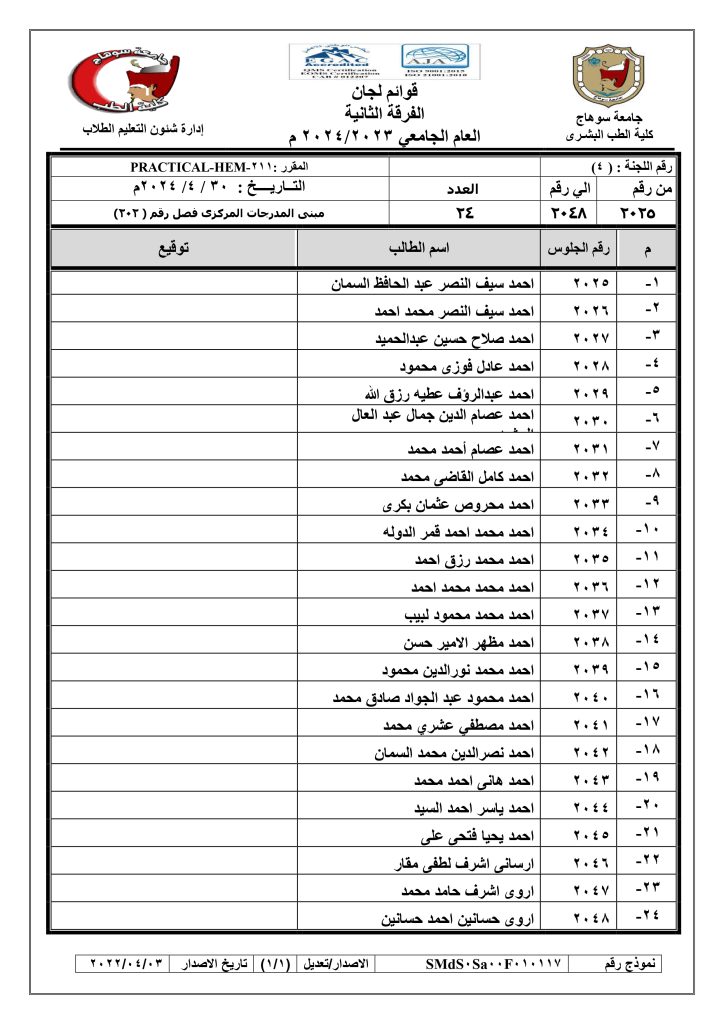 جامعة سوهاج
كلية الطب
إدارة شئون التعليم الطلاب
EGAC
Accredited
QMS Certification
EOMS Certification
CAB # 012207
AJA
ISO 9001:2015
ISO 21001:2018
جامعة سوهاج
كلية الطب البشرى
قوائم لجان
الفرقة الثانية
العام الجامعي ٢٠٢٤/٢٠٢٣ م
رقم اللجنة : ( ٤) المقرر :PRACTICAL-HEM-٢١١
من رقم الي رقم العدد التــاريـــخ : ٣٠ / ٤/ ٢٠٢٤م
٢٠٢٥ ٢٠٤٨ ٢٤ مبنى المدرجات المركزى فصل رقم (٢٠٢)
م رقم الجلوس اسم الطالب توقيع
١- ٢٠٢٥ احمد سيف النصر عبد الحافظ السمان
٢- ٢٠٢٦ احمد سيف النصر محمد احمد
٣- ٢٠٢٧ احمد صلاح حسين عبدالحميد
٤- ٢٠٢٨ احمد عادل فوزى محمود
٥- ٢٠٢٩ احمد عبدالرؤف عطيه رزق الله
٦- ٢٠٣٠ احمد عصام الدين جمال عبد العال
٧- ٢٠٣١ احمد عصام أحمد محمد
٨- ٢٠٣٢ احمد كامل القاضى محمد
٩- ٢٠٣٣ احمد محروص عثمان بكرى
١٠- ٢٠٣٤ احمد محمد احمد قمر الدوله
١١- ٢٠٣٥ احمد محمد رزق احمد
١٢- ٢٠٣٦ احمد محمد محمد احمد
١٣- ٢٠٣٧ احمد محمد محمود لبيب
١٤- ٢٠٣٨ احمد مظهر الامير حسن
١٥- ٢٠٣٩ احمد محمد نورالدين محمود
١٦- ٢٠٤٠ احمد محمود عبد الجواد صادق محمد
١٧- ٢٠٤١ احمد مصطفي عشري محمد
١٨- ٢٠٤٢ احمد نصرالدين محمد السمان
١٩- ٢٠٤٣ احمد هانى احمد محمد
٢٠- ٢٠٤٤ احمد ياسر احمد السيد
٢١- ٢٠٤٥ احمد يحيا فتحى على
٢٢- ٢٠٤٦ ارسانى اشرف لطفى مقار
٢٣- ٢٠٤٧ اروى اشرف حامد محمد
٢٤- ٢٠٤٨ اروى حسانين احمد حسانين
نموذج رقم SMdS٠Sa٠٠F٠١٠١١٧ الاصدار/تعديل (١/١) تاريخ الاصدار ٢٠٢٢/٠٤/٠٣